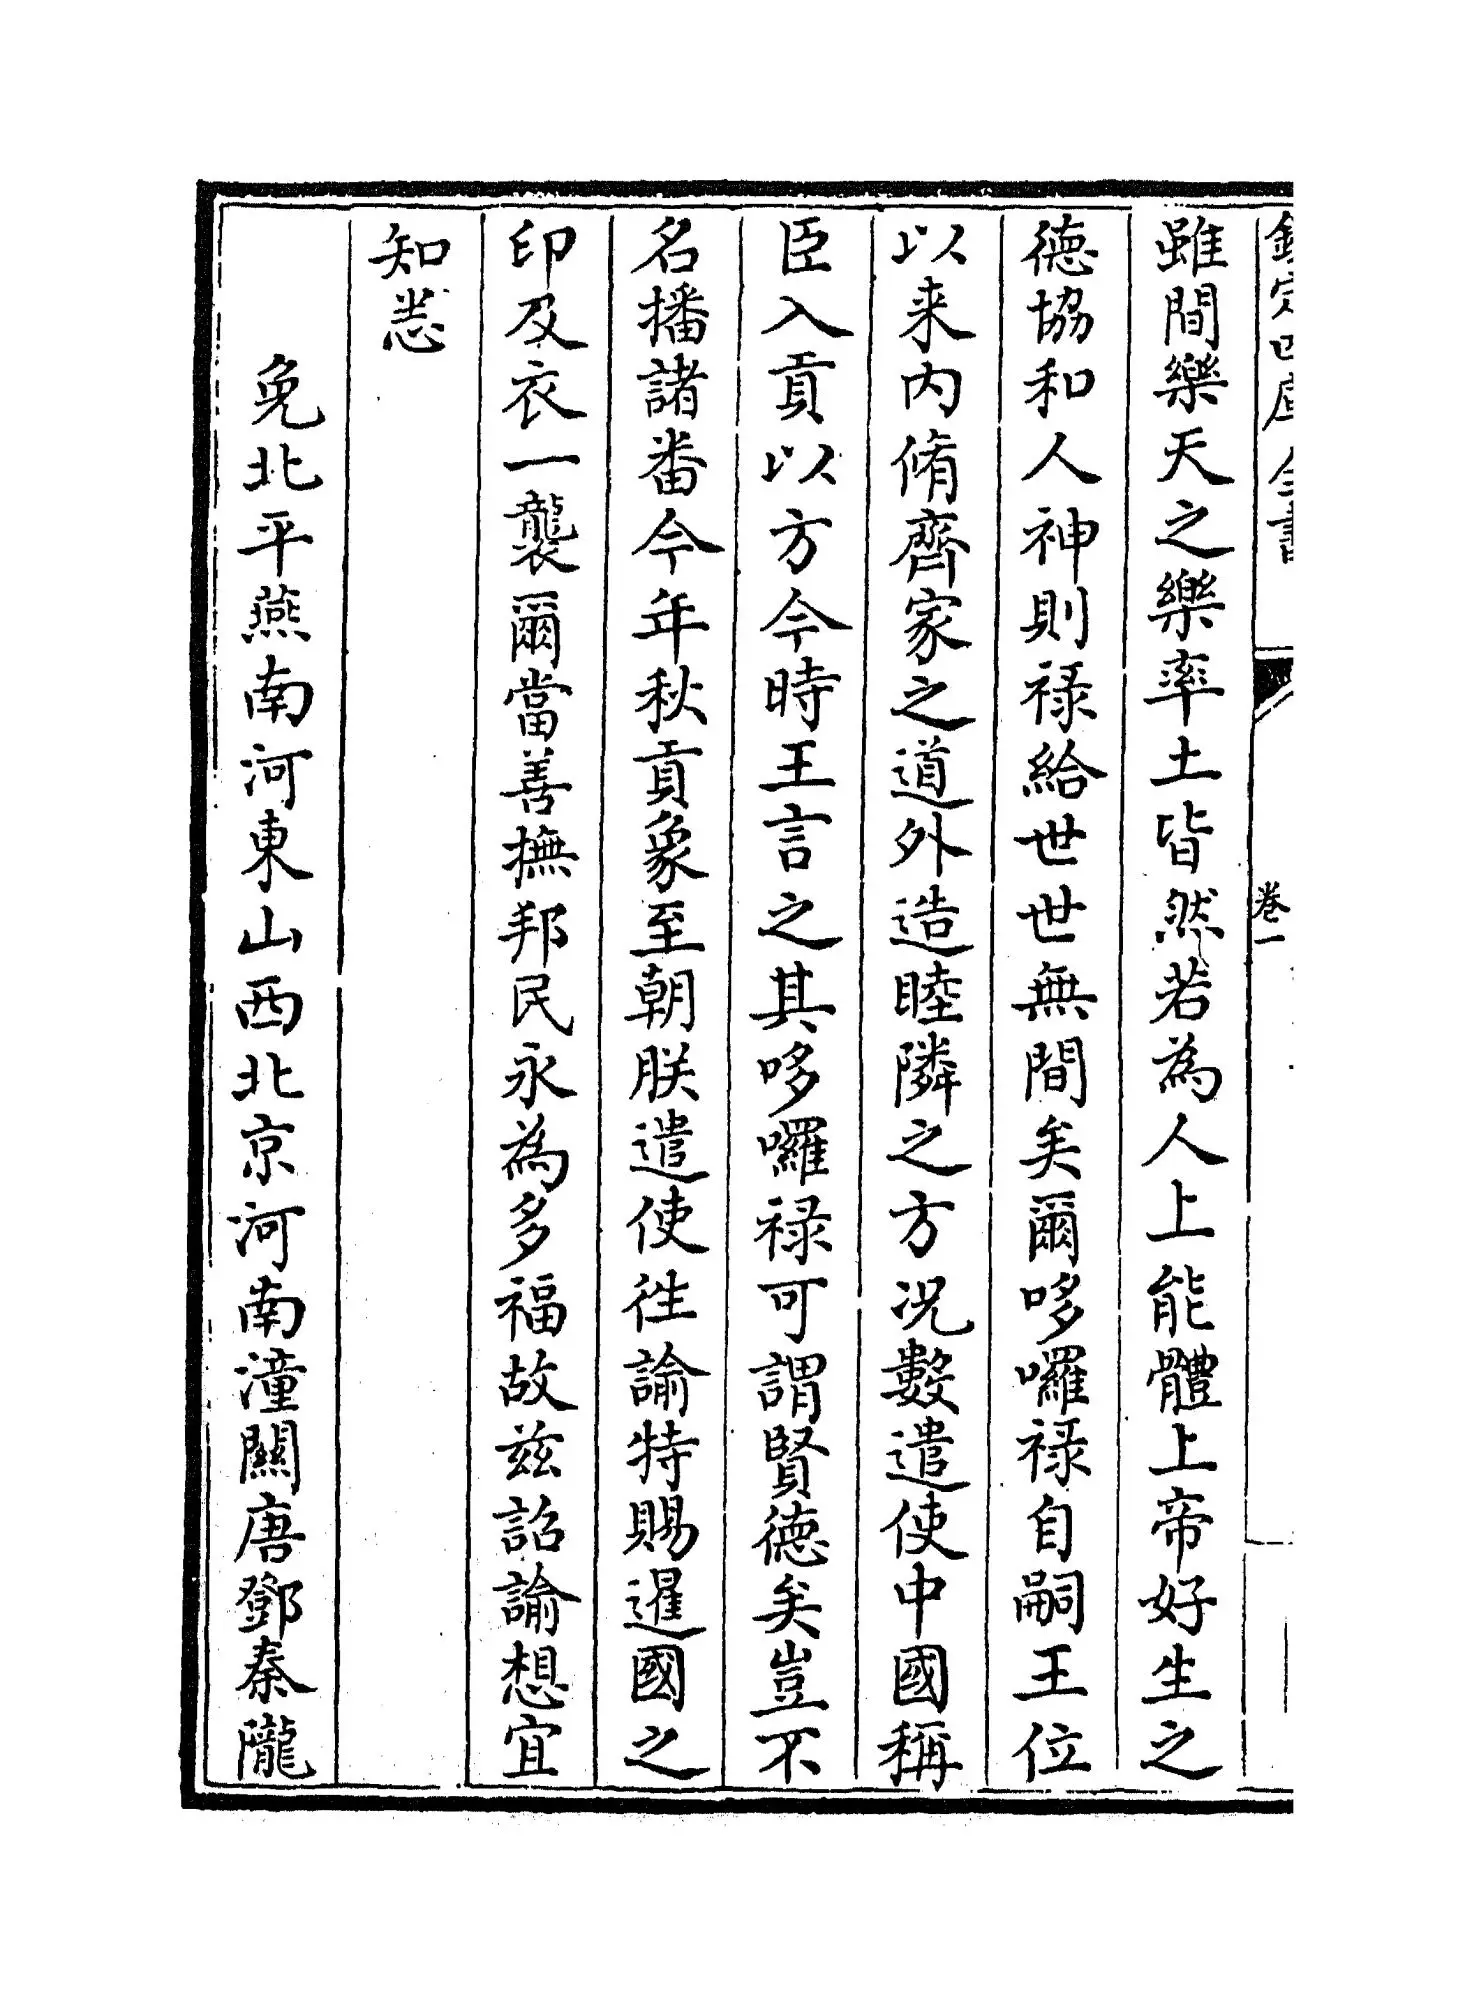 欽定四庫全書
卷一
雖間樂天之樂率土皆然若為人上能體上帝好生之
德協和人神則禄給世世無間矣爾哆囉禄自嗣王位
以来内脩齊家之道外造睦隣之方况數遣使中國稱
臣入貢以方今時王言之其哆囉禄可謂賢德矣豈不
名播諸番今年秋貢象至朝朕遣使徃諭特賜暹國之
印及衣一襲爾當善撫邦民永為多福故兹詔諭想宜
知悉
免北平燕南河東山西北京河南潼關唐鄧秦隴